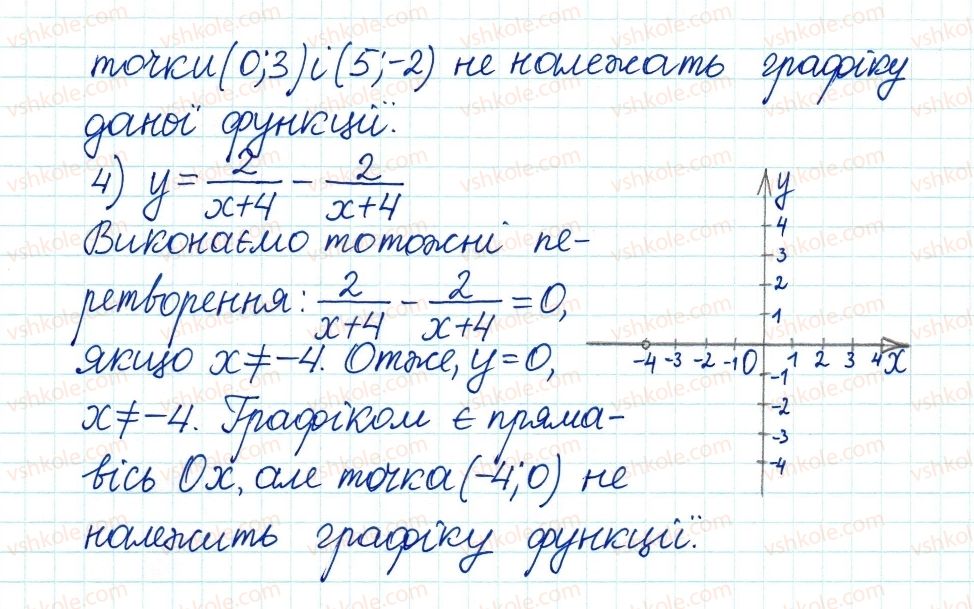 точки (0;3) і (5;-2) не належать графіку
даної функції.
4) y = 2/(x+4) - 2/(x+4)
Виконаємо тотожні пе-
ретворення: 2/(x+4) - 2/(x+4) = 0,
якщо x ≠ -4. Отже, y = 0,
x ≠ -4. Графіком є пряма-
вісь Ox, але точка (-4;0) не
належить графіку функції.
y
4
3
2
1
-4 -3 -2 -1 0 1 2 3 4 x
-1
-2
-3
-4
vshkole.com